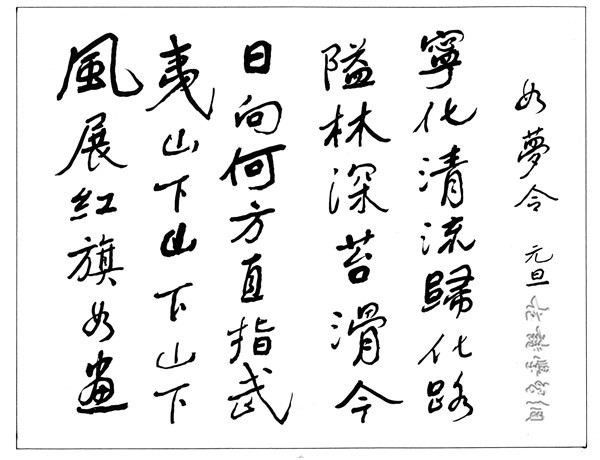 如夢令 元旦
寧化清流歸化路
隘林深苔滑今
日向何方直指武
夷山下山下山下
風展紅旗如畫